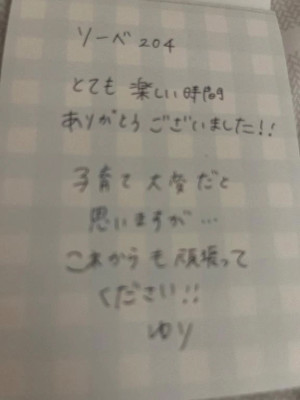 ソーベ 204
とても 楽しい時間
ありがとうございました!!
子育て 大変だと
思いますが…
これからも頑張って
ください!!
ゆり